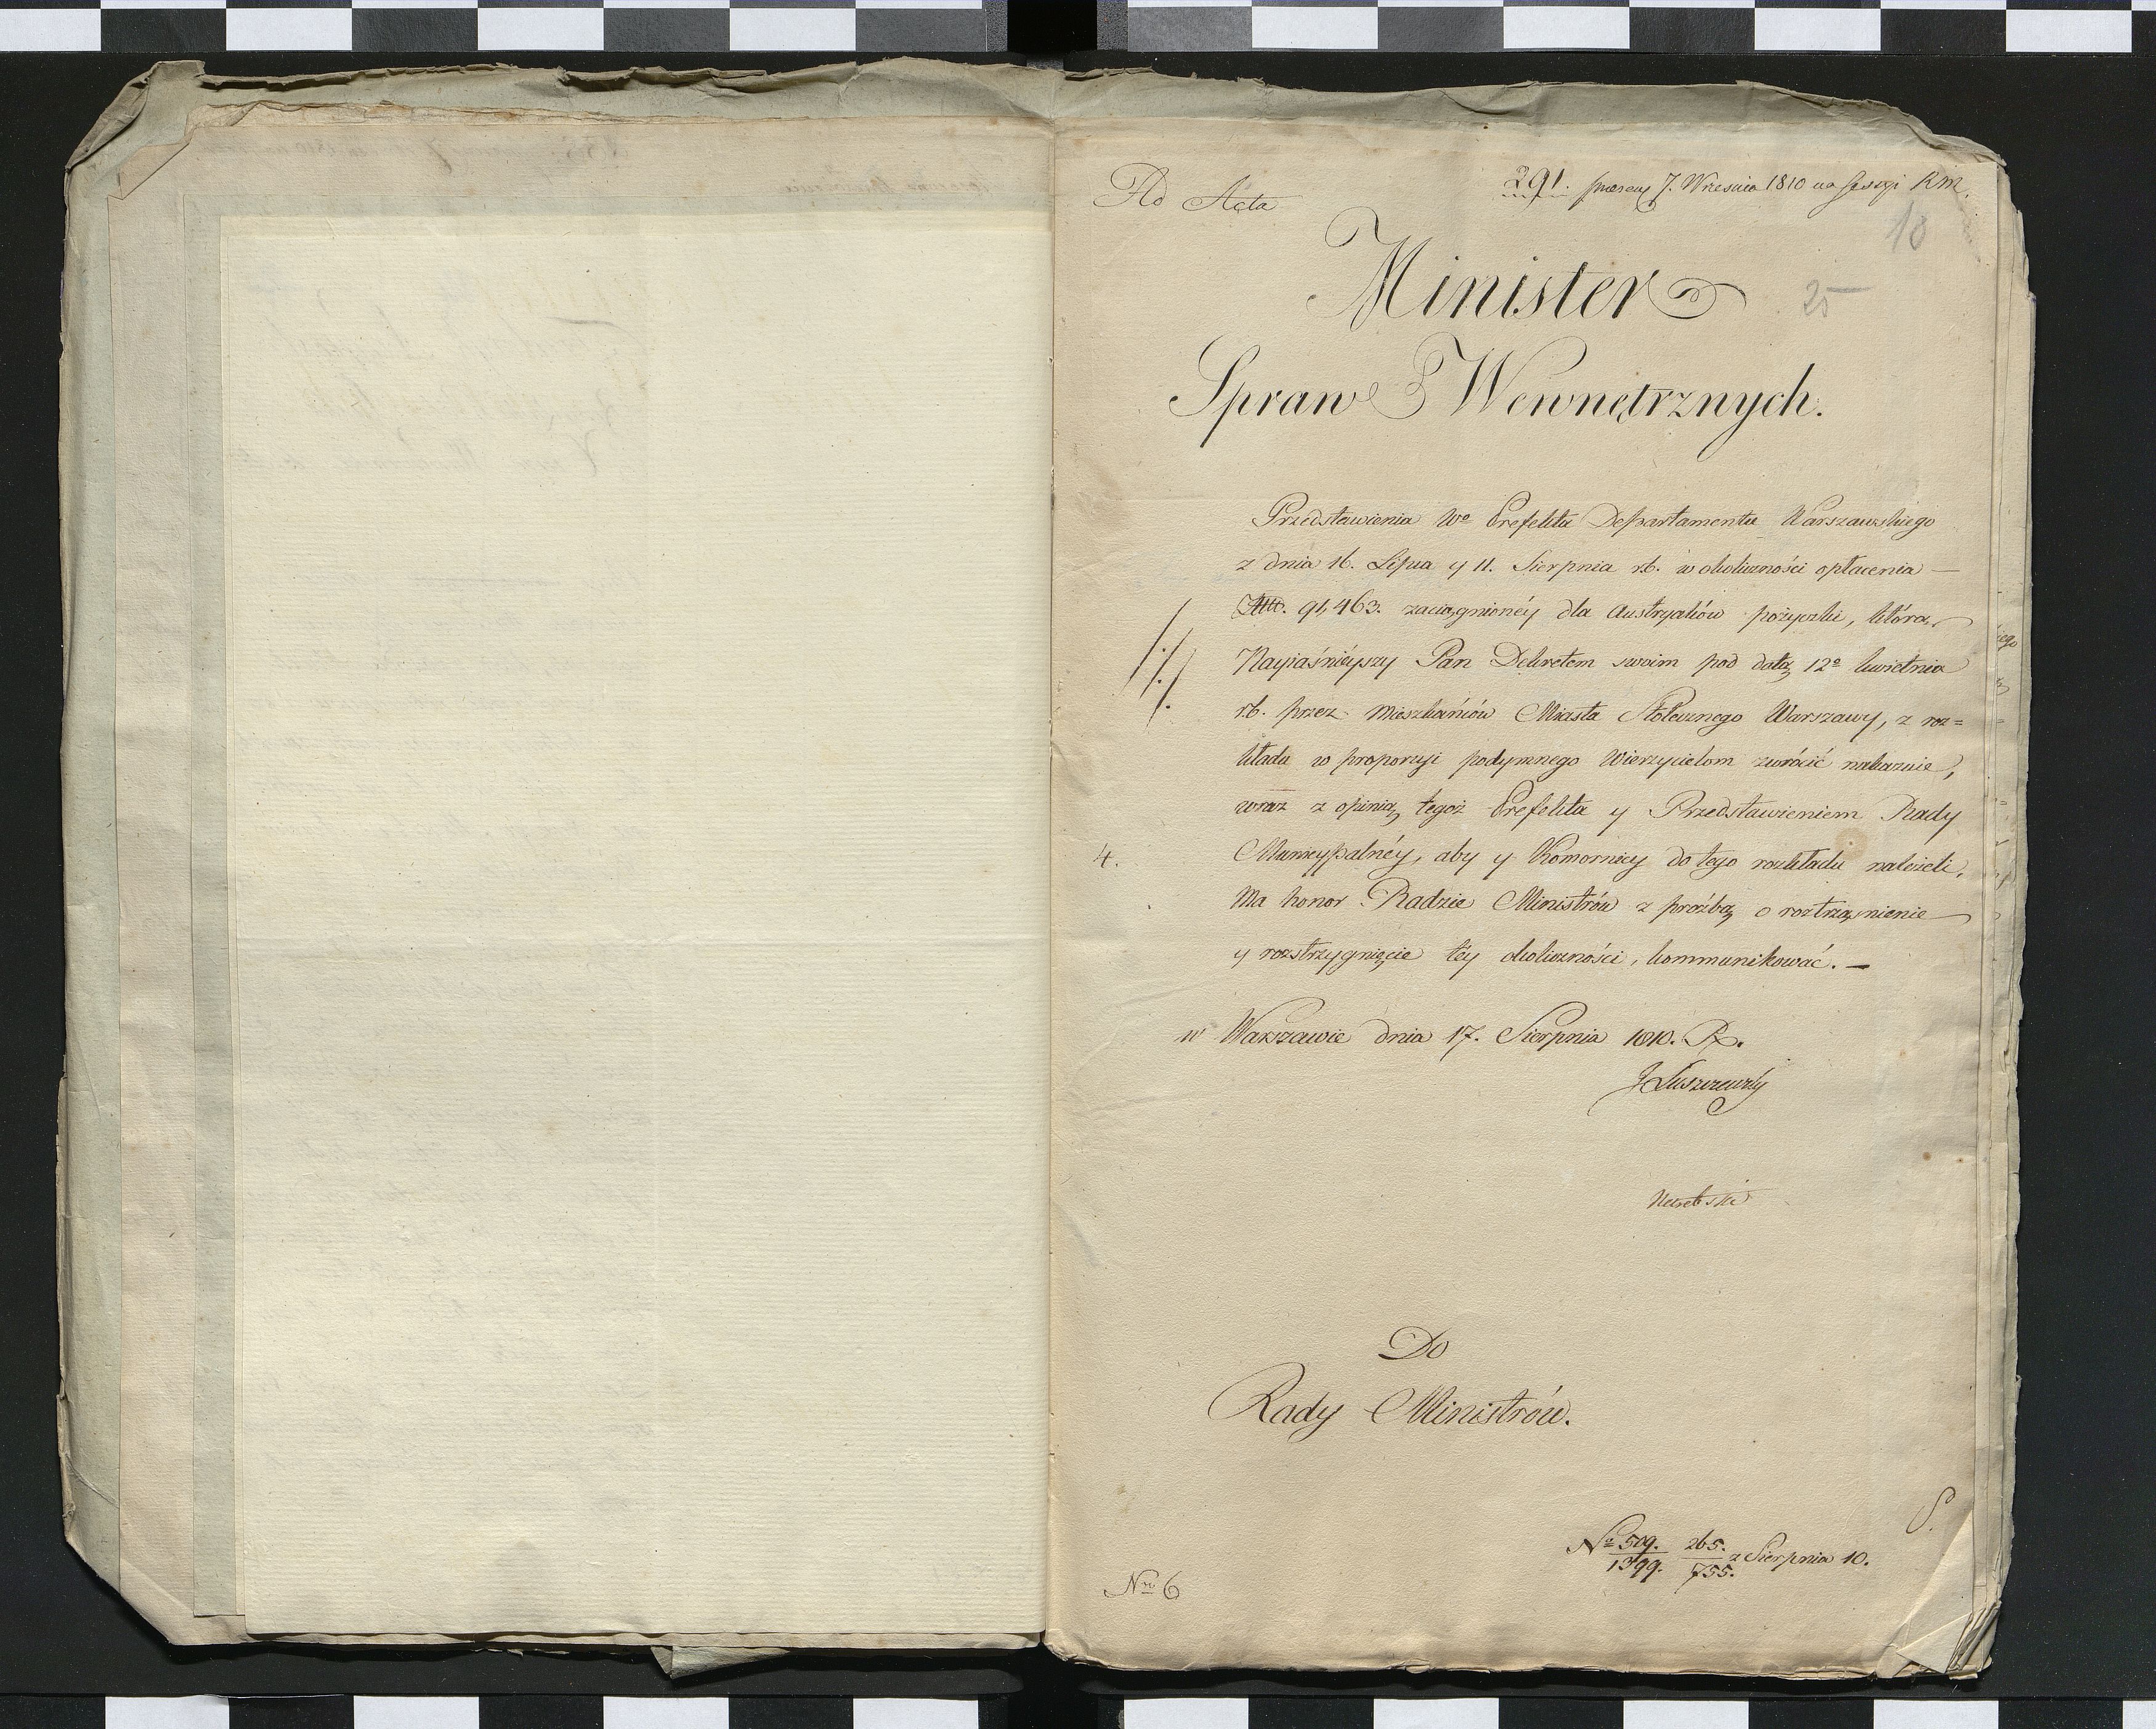 Ad Acta
291. 7. Września 1810 na Sessyi RM.
18
25
Minister
Spraw Wewnętrznych.
Przedstawienia Wo Prefekta Departamentu Warszawskiego
z dnia 16. Lipca y 11. Sierpnia r.b. w okoliczności opłacenia
91,463. zaciągnionéy dla Austryaków pożyczki, którą
Nayiaśnieyszy Pan Dekretem swoim pod datą 12o kwietnia
r.b. przez Mieszkańców Miasta Stołecznego Warszawy, z roz=
kładu w proporcyi podymnego Wierzycielom zwrócić nakazuie,
wraz z opinią tegoż Prefekta y Przedstawieniem Rady
4. Municypalnéy, aby y Komornicy do tego rozkładu należeli,
Ma honor Radzie Ministrów z prośbą o roztrząśnienie
y rozstrzygnięcie téy okoliczności, kommunikować. —
w Warszawie dnia 17. Sierpnia 1810. R.
J Łuszczewski
Do
Rady Ministrów.
No 509. 265.
1399. 755. z Sierpnia 10.
Nro 6